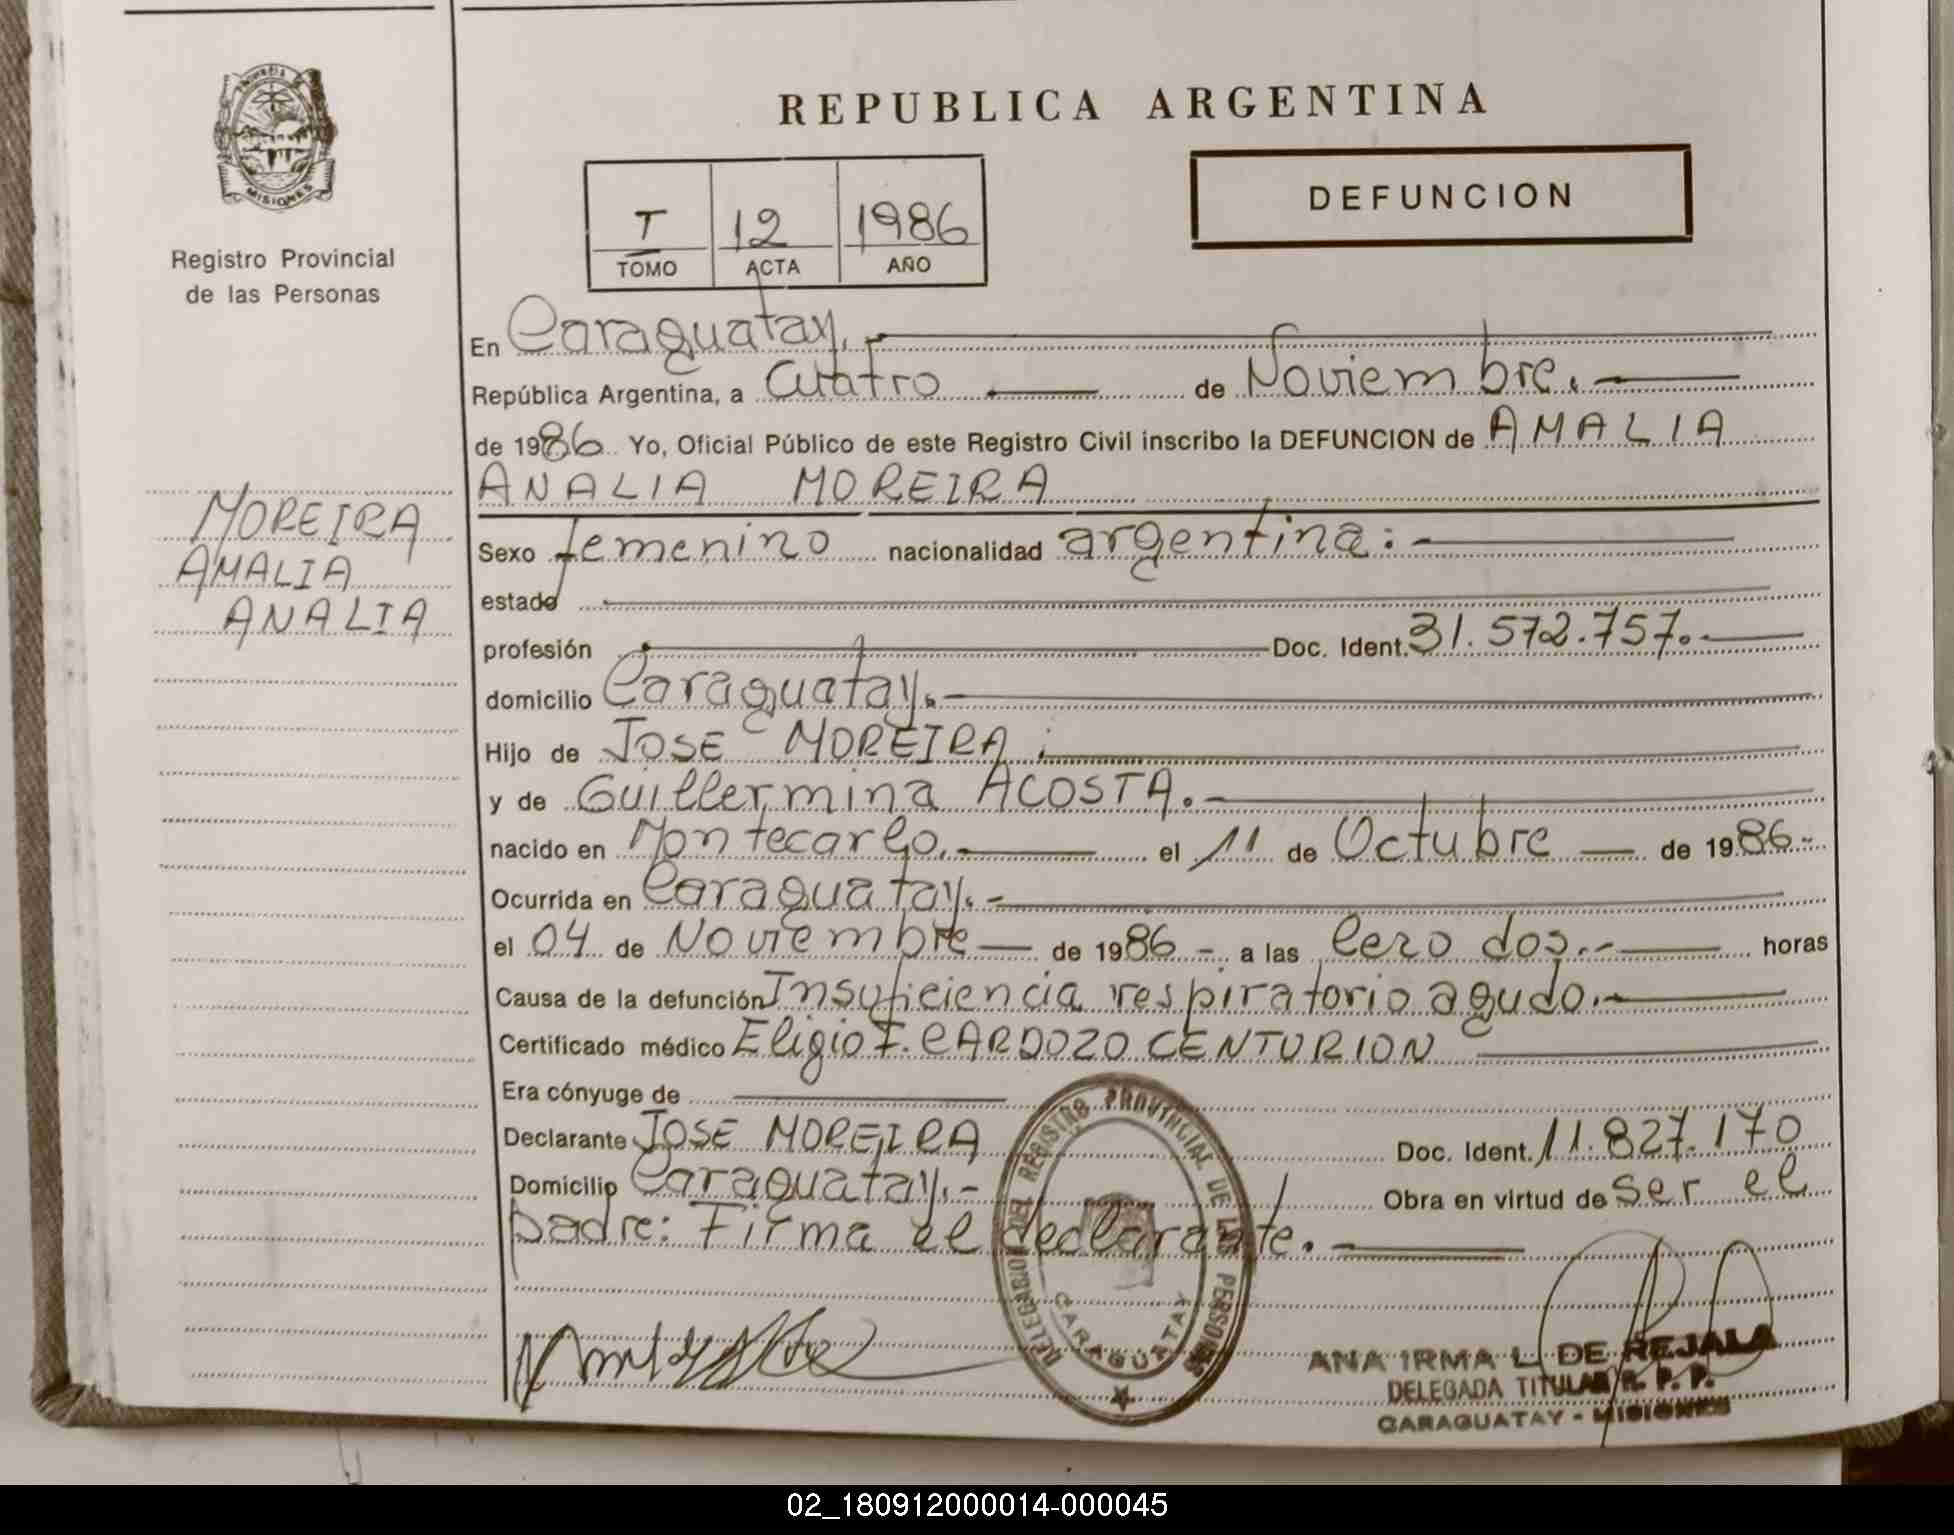 PROVINCIA DE
MISIONES
Registro Provincial
de las Personas
MOREIRA
AMALIA
ANALIA
REPUBLICA ARGENTINA
T 12 1986
TOMO ACTA AÑO
DEFUNCION
En Caraguatay,
República Argentina, a Cuatro de Noviembre.
de 1986 Yo, Oficial Público de este Registro Civil inscribo la DEFUNCION de AMALIA
ANALIA MOREIRA
Sexo femenino nacionalidad argentina:-
estado
profesión Doc. Ident. 31.572.757.-
domicilio Caraguatay.-
Hijo de JOSE MOREIRA;
y de Guillermina ACOSTA.-
nacido en Montecarlo.- el 11 de Octubre de 1986-
Ocurrida en Caraguatay.-
el 04 de Noviembre de 1986 -. a las Cero dos.- horas
Causa de la defunción Insuficiencia respiratorio agudo.-
Certificado médico Eligio F. CARDOZO CENTURION
Era cónyuge de
Declarante JOSE MOREIRA Doc. Ident. 11.827.170
Domicilio Caraguatay.- Obra en virtud de ser el
padre: Firma el declarante.
DELEGACION DEL REGISTRO PROVINCIAL DE LAS PERSONAS
CARAGUATAY
ANA IRMA L. DE REJALA
DELEGADA TITULAR R. P. P.
CARAGUATAY - MISIONES
02_180912000014-000045